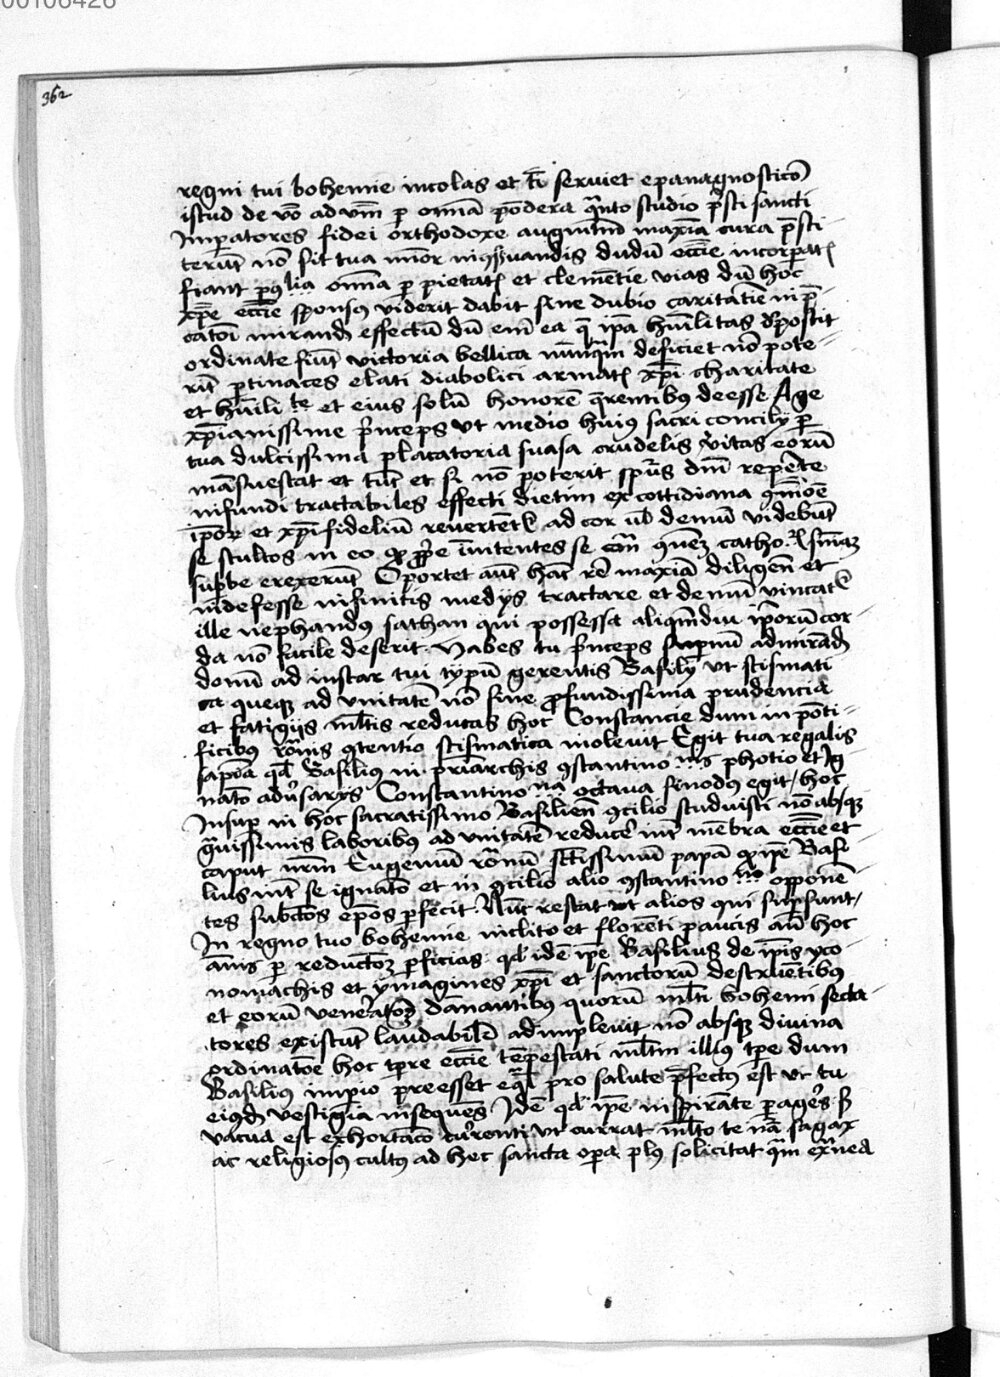 00106426
362
regni tui bohemie incolas et t̄n seruiet epanagnosticō
istud de vō ad vm̄ p om̄ia pōdera q̄nto studio p̄sti sancti
Imp̄atores fidei orthodoxe augm̄tād maxīa cura p̄sti
terūt nō sit tua mīor dudū eccīe incorpatꝭ
fiant om̄ia p pietatꝭ et clemētie vias dū hoc
xp̄e eccīe sponsus viderit dabit sine dubio caritatiē in p̄
catoī mirand effectū dū em̄ ea q̄ ip̄a huīlitas deposcit
ordinate fiūt victoria bellica nūnq̄m deficiet nō pote
rūt ꝑtinaces elati diabolici armatꝭ xp̄i charitate
et huīlite et eius solū honorē q̄rentibus deesse Age
xp̄ianissime p̄nceps vt medio huius sacri concilij ꝑ
tua dulcissima placatoria suasa crudelis v̄itas eorū
māsuescat et tūc et si nō poterit spūs dn̄i repēte
infundi tractabiles effecti dietim ex cottidiana 
ip̄oꝝ et xp̄ifideliū reuertētꝛ ad cor vbi demū videbūt
se stultos in eo ꝙ ꝓp̄e se catho
supbe erexerūt Oportet aūt hāc rē maxīa diligen et
indefesse infinitis medijs tractare et demū vincatꝛ
ille nephandus sathan qui possessa aliqm̄diu ip̄orū cor
da nō facile deserit Habes tu p̄nceps supnū admirād
donū ad instar tui typū gerentis Basilij vt scismati
ca queqꝫ ad vnitatē nō sine ꝓfundissima prudencia
et fatigijs ml̄tis reducas hoc Constancie dum in pōti
ficibus rōnis ꝯtentio scismatica inoleuit Egit tua regalis
sapīa qd Basilius in p̄riarchis ꝯstantino nis photio et Ig
nato adūsarijs Constantino na octaua sinodus egit hoc
Insup in hoc sacratissimo Basilien ꝯcilio studuisti nō absqꝫ
g̃uissimis laboribus ad vnitatē reducē int̄ mēbra eccīe et
caput nr̄m Eugeniū rōnū sctīssimū papā ꝙ ip̄e Basi
lius int̄ se ignatō et in ꝯcilio alio ꝯstantino opponē
tes subctōs ep̄os ꝑfecit Nūc restat vt alios qui supsunt
In regno tuo bohemie inclito et florēti paucis aūt hoc
annis ꝑ reductōꝫ ꝑficias qd idē ip̄e Basilius de ip̄is yco
nomachis et ymagines xp̄i et sanctorū destruētibus
et eorū venerātōꝫ dānantibus quorū ml̄ti bohemi secta
tores existūt laudabilē adimpleuit nō absqꝫ divina
ordinatōe hoc tp̄re eccīe tēpestati ml̄tm illius tp̄e dum
Basilius impio p̄eesset pro salute p̄fectus est vt tu
eiusd vestigia insequēs Idē qd ip̄e inspirāte ꝑageres S
vacua est exhortaco currenti vt currat ml̄to te nā sagax
ac religiosus cultus ad hec sancta opa plus solicitat q̄m ext̄nea